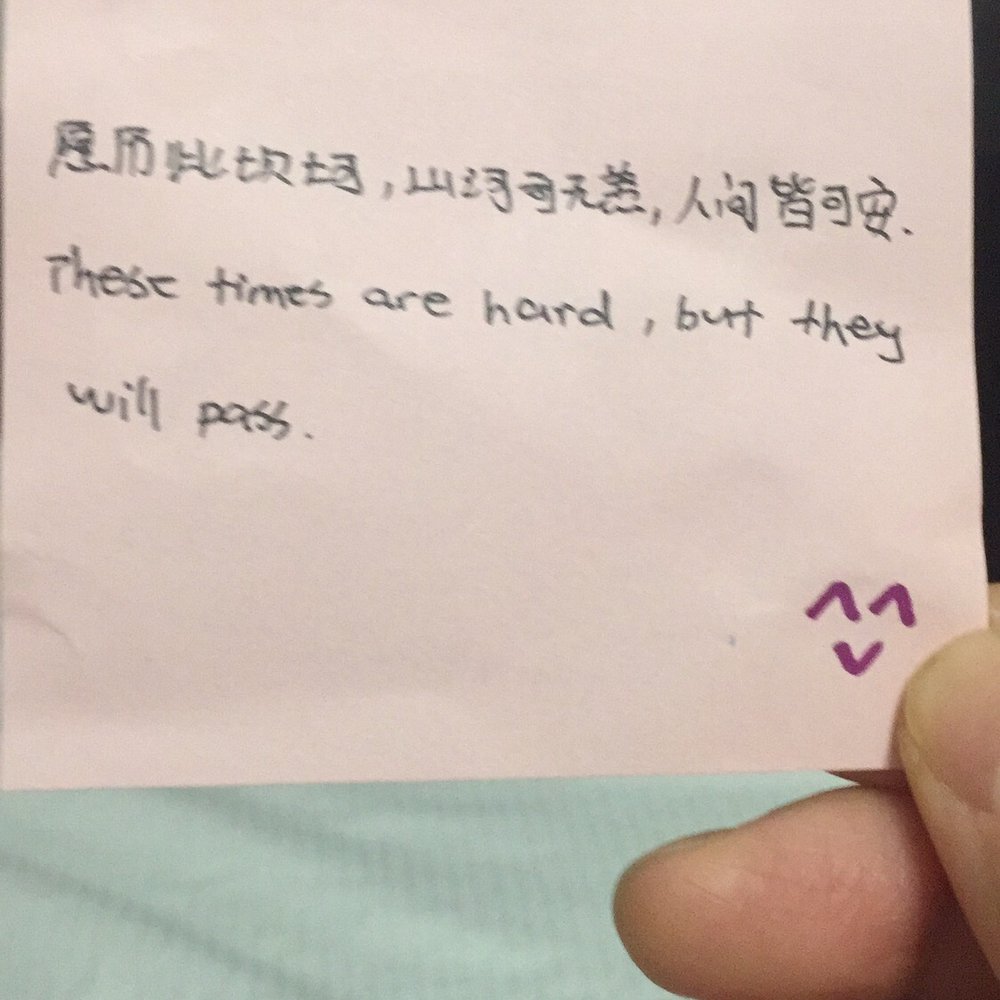 愿历此坎坷,山河可无恙,人间皆可安.
These times are hard, but they
will pass.